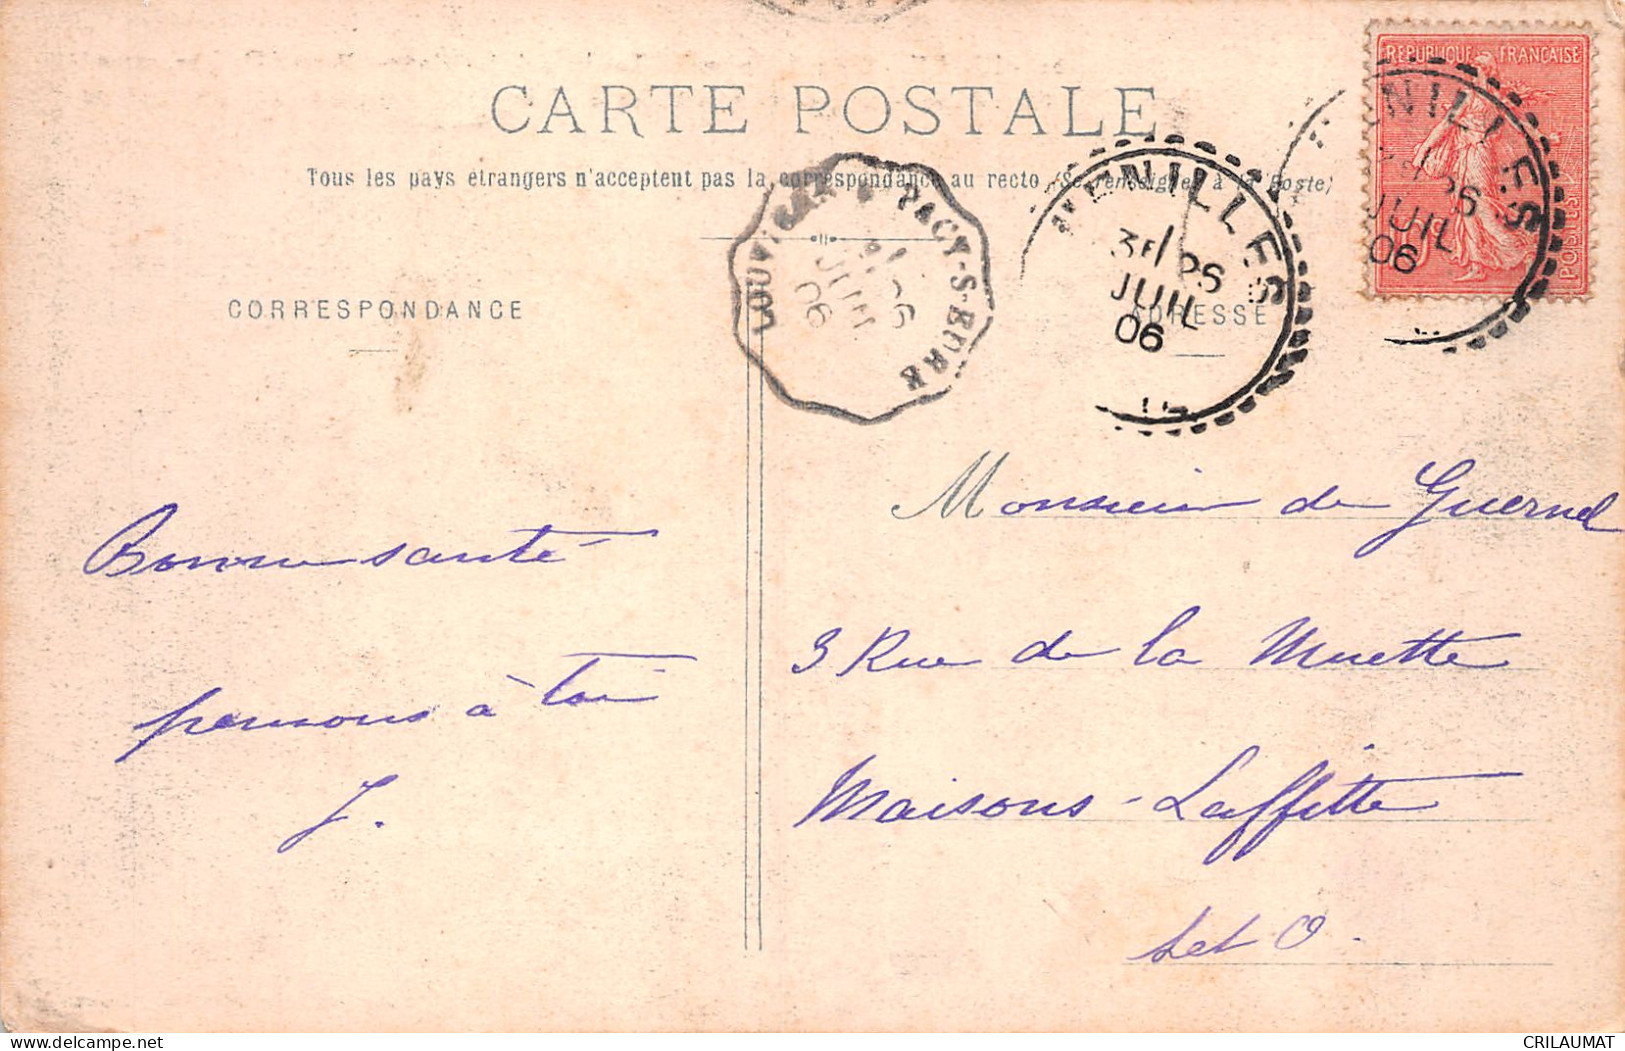 CARTE POSTALE
Tous les pays étrangers n'acceptent pas la correspondance au recto (Se renseigner à la Poste)
REPUBLIQUE FRANÇAISE
POSTES
LOUVIERS PACY-S-EURE
JUIL
06
MENILLES
3E/ 26
JUIL
06
NILLES
26
JUIL
06
CORRESPONDANCE
ADRESSE
Bonne santé
pensons à toi
J.
Monsieur de Guernel
3 Rue de la Muette
Maisons-Laffitte
S et O.
CRILAUMAT